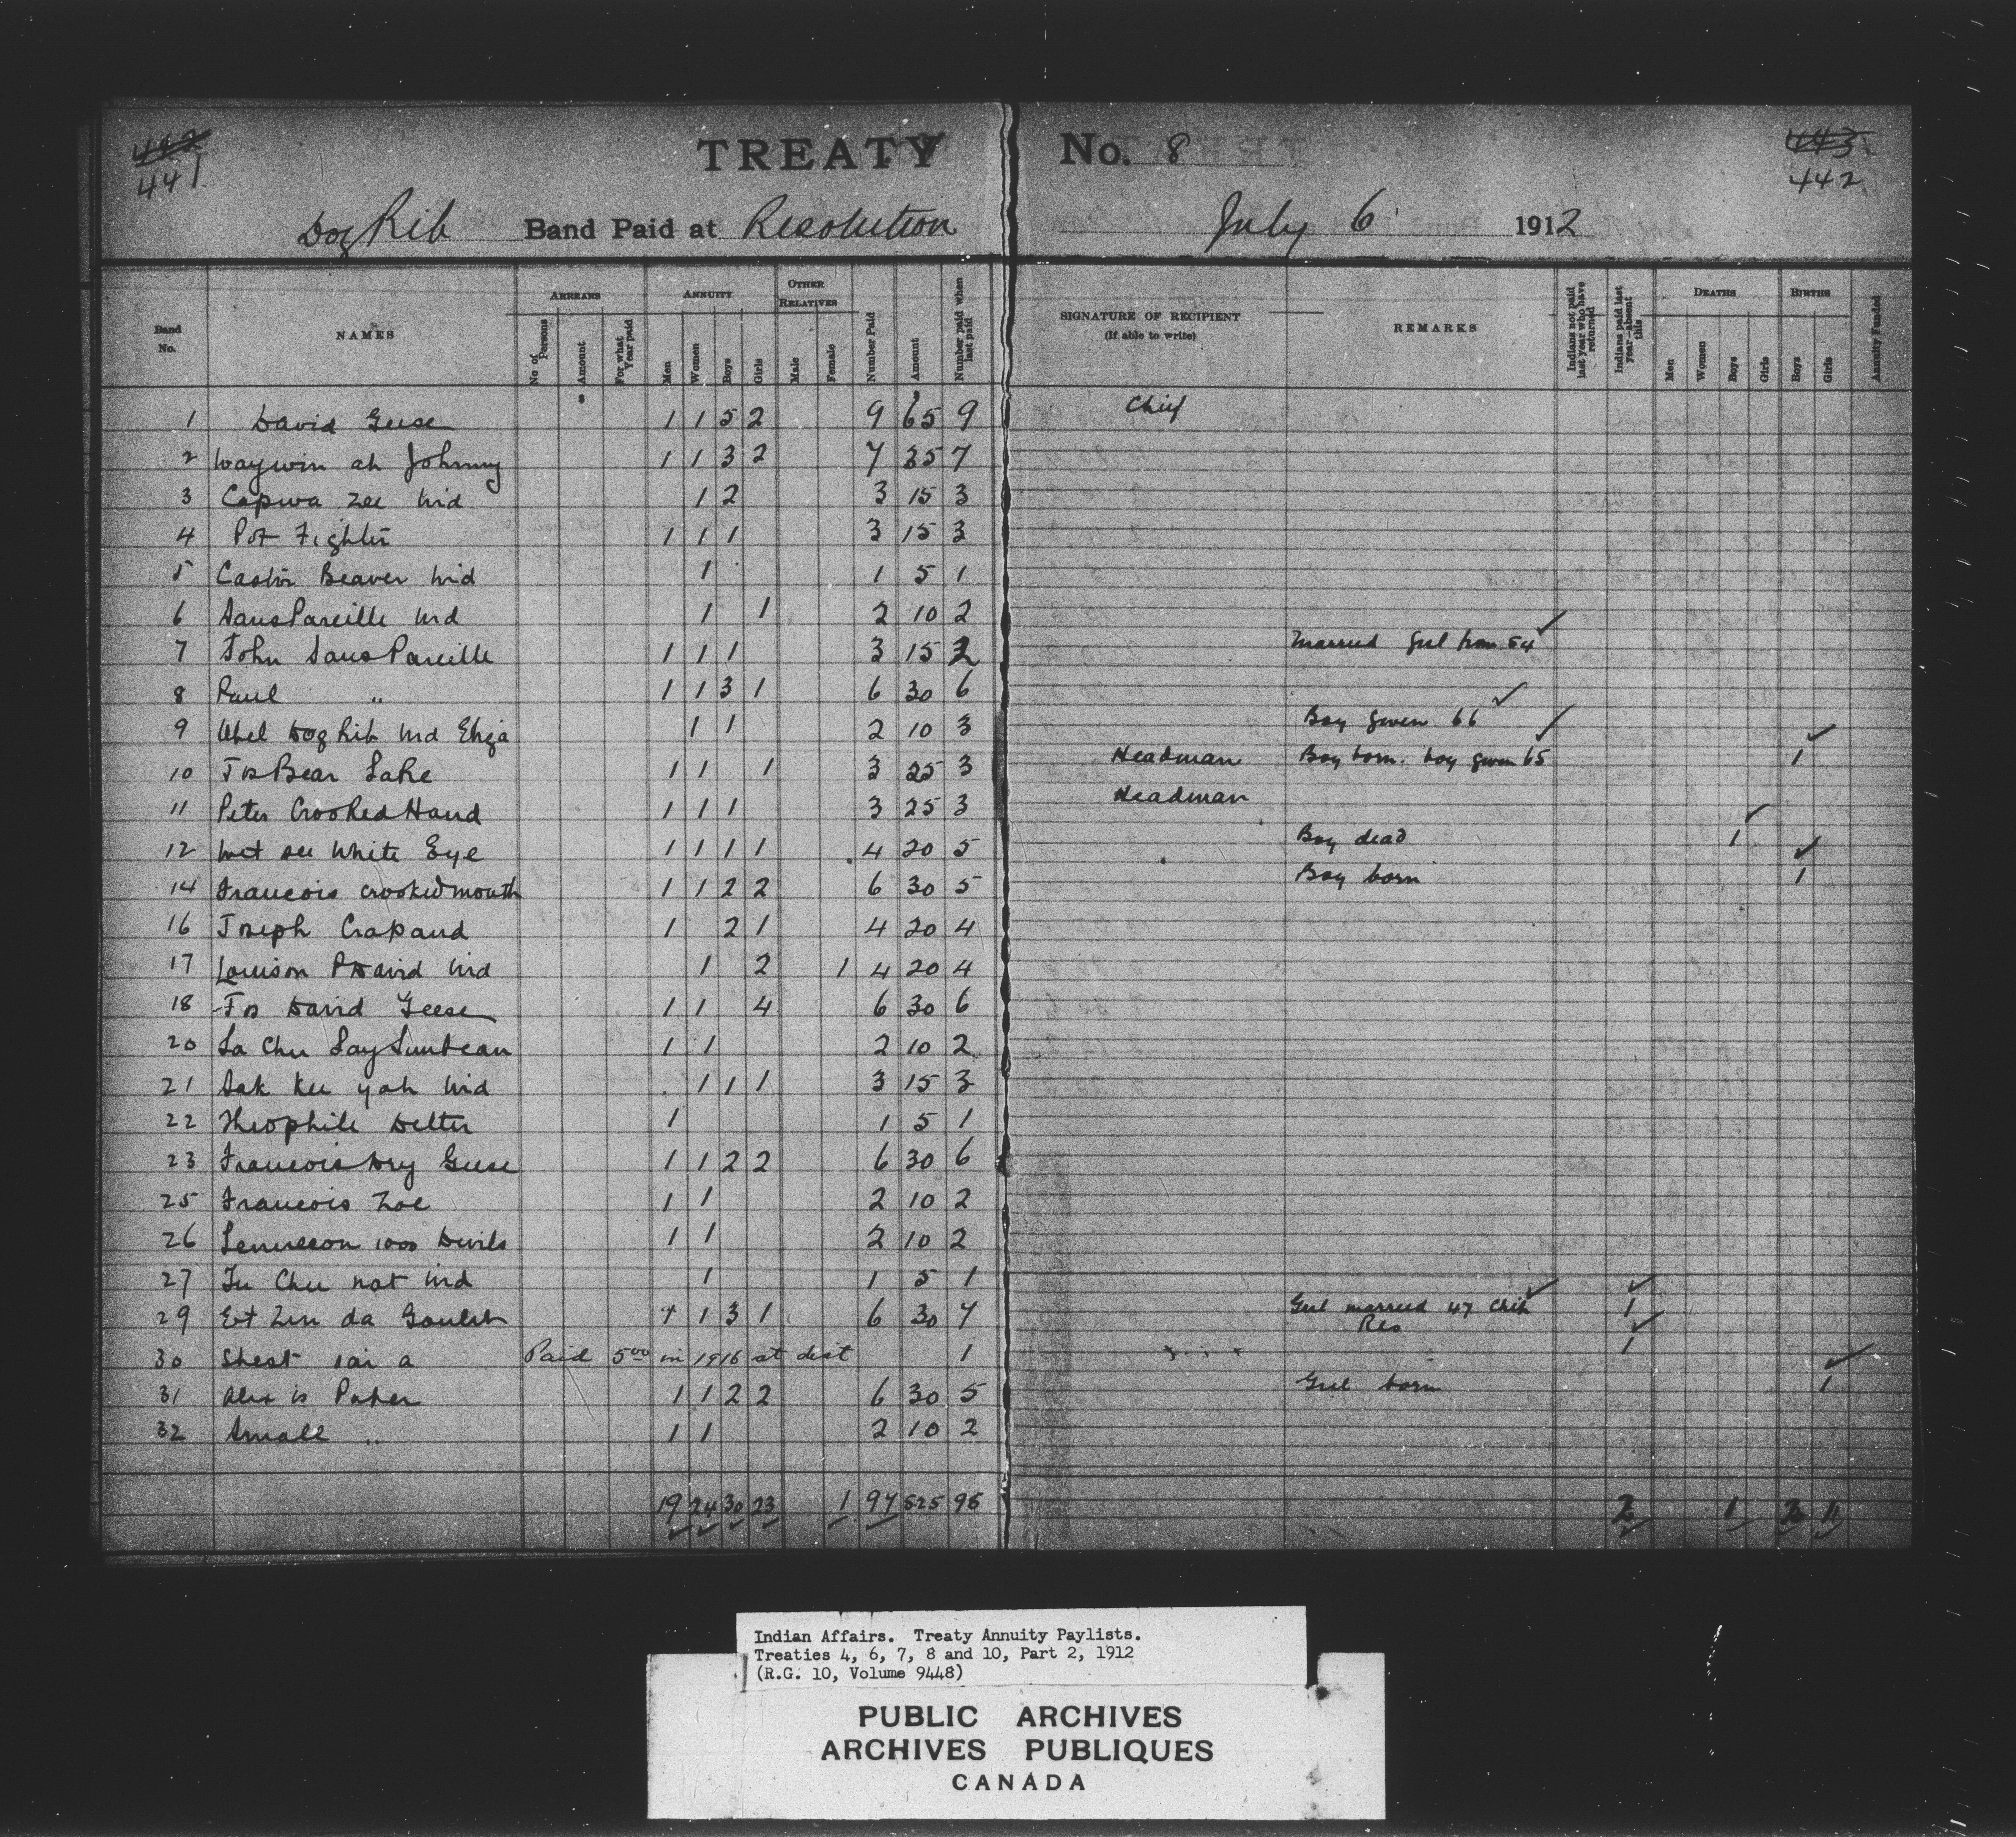 442 443
441 442
TREATY No. 8
Dog Rib Band Paid at Resolution July 6 1912
Band No. NAMES ARREARS No of Persons Amount $ For what Year paid ANNUITY Men Women Boys Girls OTHER RELATIVES Male Female Number Paid Amount Number paid when last paid SIGNATURE OF RECIPIENT (if able to write) REMARKS Indians not paid last year who have returned Indians paid last year—absent this DEATHS Men Women Boys Girls BIRTHS Boys Girls Annuity Funded
1 David Geese 1 1 5 2 9 65 9 Chief
2 Waywin ah Johnny 1 1 3 2 7 35 7
3 Capwa zee Wid 1 2 3 15 3
4 Pot Fighter 1 1 1 3 15 3
5 Castor Beaver Wid 1 1 5 1
6 SansPareille Wid 1 1 2 10 2
7 John SansPareille 1 1 1 3 15 2 Married Girl from 54
8 Paul " 1 1 3 1 6 30 6
9 Abel Dog Rib Wid Eliza 1 1 2 10 3 Boy given 66
10 Jos Bear Lake 1 1 1 3 25 3 Headman Boy born. boy given 65 1
11 Peter Crooked Hand 1 1 1 3 25 3 Headman
12 Wet see White Eye 1 1 1 1 4 20 5 Boy dead 1
14 Francois crookedmouth 1 1 2 2 6 30 5 Boy born 1
16 Joseph Crapaud 1 2 1 4 20 4
17 Louison David Wid 1 2 1 4 20 4
18 Jos David Geese 1 1 4 6 30 6
20 La Chee Lay Sunbean 1 1 2 10 2
21 Sak kee yah Wid 1 1 1 3 15 3
22 Theophile Delter 1 1 5 1
23 Francois Dry Geese 1 1 2 2 6 30 6
25 Francois Zoe 1 1 2 10 2
26 1000 Devils 1 1 2 10 2
27 Chee nat Wid 1 1 5 1
29 Et Zen da Goulet 1 1 3 1 6 30 7 Girl married 47 Chip 1
Res
30 Shest a Paid 5⁰⁰ in 1916 at dist 1 1
31 Alex is Parker 1 1 2 2 6 30 5 Girl born 1
32 Small " 1 1 2 10 2
19 24 30 23 1 97 525 98 2 1 2 1
Indian Affairs. Treaty Annuity Paylists.
Treaties 4, 6, 7, 8 and 10, Part 2, 1912
(R.G. 10, Volume 9448)
PUBLIC ARCHIVES
ARCHIVES PUBLIQUES
CANADA